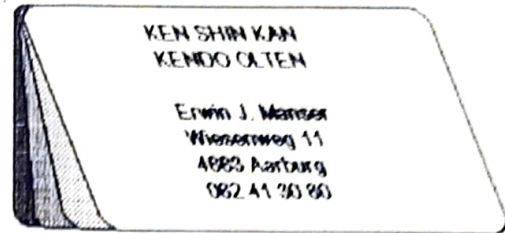 KEN SHIN KAN
KENDO OLTEN
Erwin J. Manser
Wiesenweg 11
4663 Aarburg
062 41 30 80